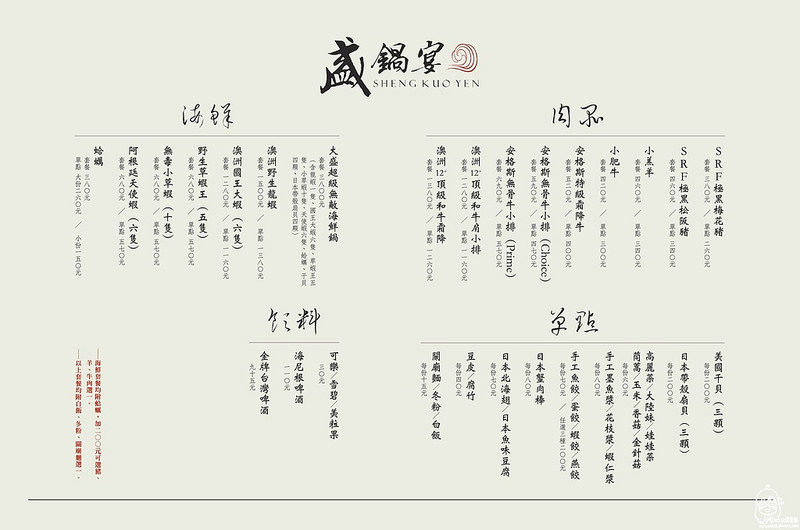 盛鍋宴
SHENG KUO YEN
肉品
SRF極黑梅花豬
套餐 三八〇元 / 單點 二六〇元
SRF極黑松阪豬
套餐 四六〇元 / 單點 三四〇元
小羔羊
套餐 四六〇元 / 單點 三四〇元
小肥牛
套餐 四二〇元 / 單點 三〇〇元
安格斯特級霜降牛
套餐 五二〇元 / 單點 四〇〇元
安格斯無骨牛小排 (Choice)
套餐 五九〇元 / 單點 四七〇元
安格斯無骨牛小排 (Prime)
套餐 六九〇元 / 單點 五七〇元
澳洲12⁺頂級和牛肩小排
套餐 一二八〇元 / 單點 一一六〇元
澳洲12⁺頂級和牛霜降
套餐 一三八〇元 / 單點 一二六〇元
海鮮
大盛超級無敵海鮮鍋
套餐 三八〇〇元
(含龍蝦一隻、國王大蝦六隻、草蝦王五
隻、小草蝦十隻、天使蝦六隻、蛤蠣、干貝
四顆、日本帶殼扇貝四顆)
澳洲野生龍蝦
套餐 一五〇〇元 / 單點 一三八〇元
澳洲國王大蝦 (六隻)
套餐 一二八〇元 / 單點 一一六〇元
野生草蝦王 (五隻)
套餐 六八〇元 / 單點 五七〇元
無毒小草蝦 (十隻)
套餐 六八〇元 / 單點 五七〇元
阿根廷天使蝦 (六隻)
套餐 六八〇元 / 單點 五七〇元
蛤蠣
套餐 三八〇元
單點 大份二六〇元 / 小份一五〇元
單點
美國干貝 (三顆)
每份二〇〇元
日本帶殼扇貝 (三顆)
每份二〇〇元
高麗菜/大陸妹/娃娃菜
茼萵/玉米/香菇/金針菇
每份六〇元
手工墨魚漿/花枝漿/蝦仁漿
每份八〇元
手工魚餃/蛋餃/蝦餃/燕餃
每份七〇元 / 任選三種二〇〇元
日本蟹肉棒
每份八〇元
日本北海翅/日本魚味豆腐
每份七〇元
豆皮/腐竹
每份四〇元
關廟麵/冬粉/白飯
每份十五元
飲料
可樂/雪碧/美粒果
三〇元
海尼根啤酒
一一〇元
金牌台灣啤酒
九十五元
—海鮮套餐均附蛤蠣,加二〇〇元可選豬、
羊、牛肉選一。
—以上套餐均附白飯、冬粉、關廟麵選一。